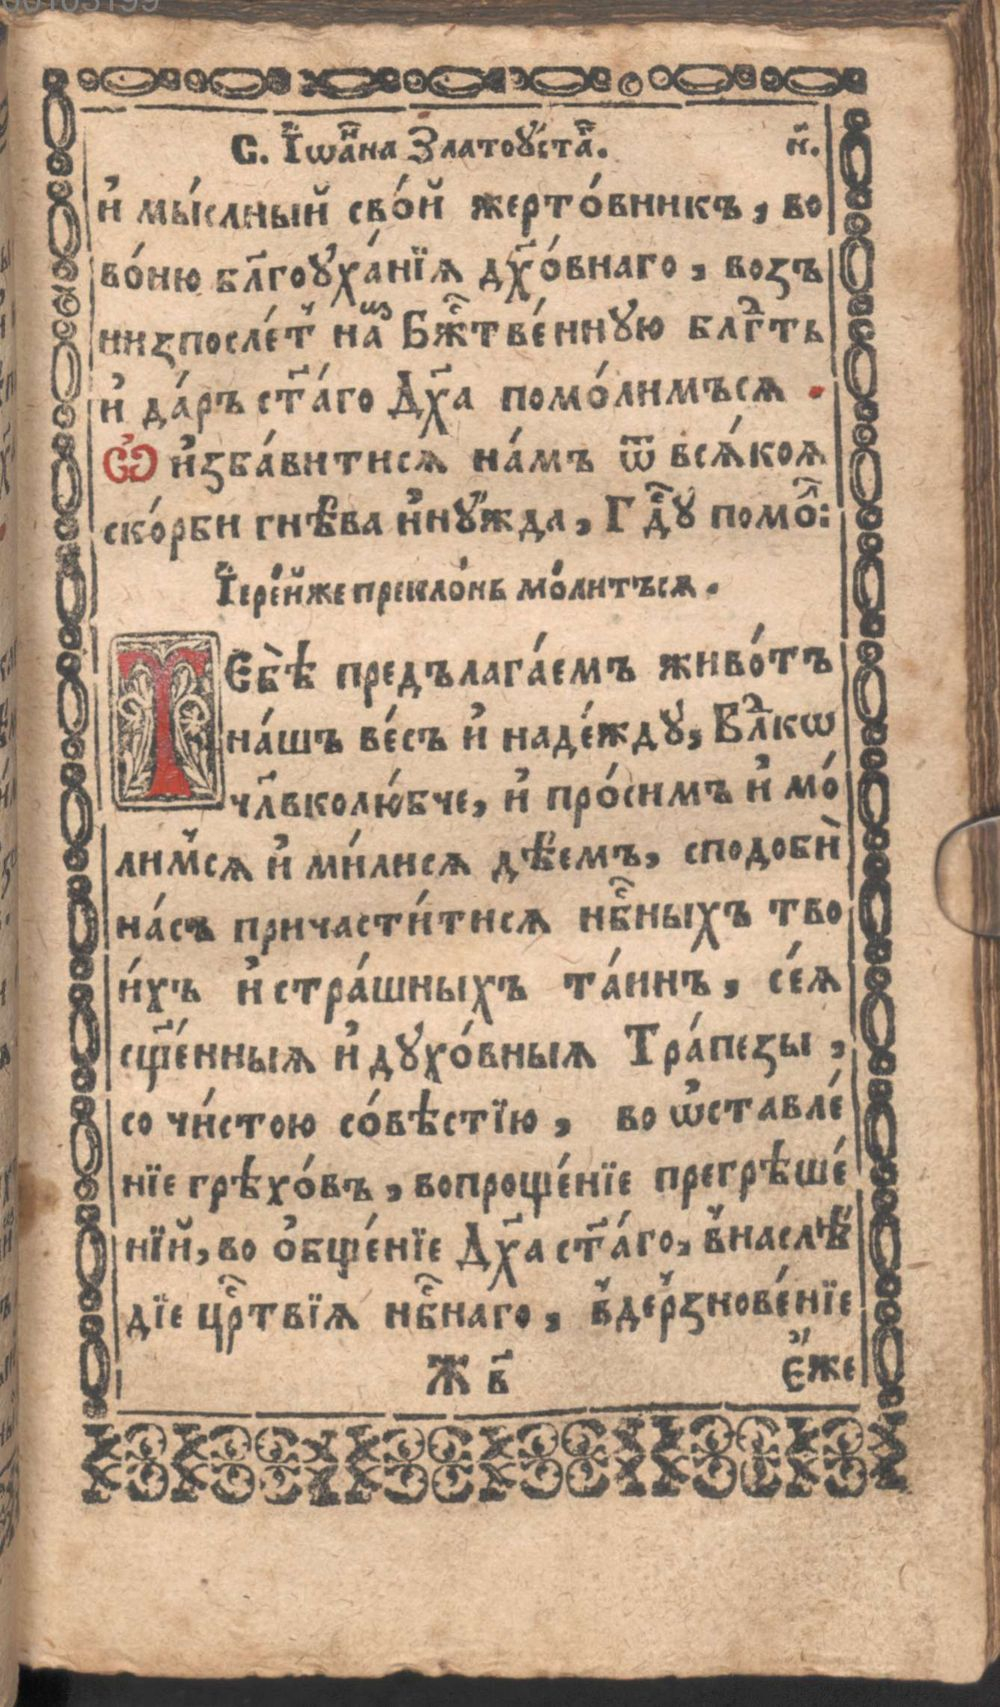 С. І҆ѡа́нна Златоꙋ́ста. н҃.
и҆ мы́слный сво́й жерто́вникъ, во
во́ню бл҃гоꙋха́нїѧ дх҃о́внаго, возъ
низпосле́т на́ Бж҇тве́ннꙋю блг҇ть
и҆ да́ръ ст҃а́го Дх҃а помо́лимъсѧ .
Ѽ и҆зба́витисѧ на́мъ ѿ всѧ́коѧ
ско́рби гнѣ́ва и҆нꙋ́жда, Гд҇ꙋ помо́л:
І҆ере́йже преклонь мо́литъсѧ .
ТЕбѐѣ предълага́емъ живо́тъ
на́шъ ве́съ и҆ наде́ждꙋ, Вл҃ко
чл҃вколю́бче, и҆ про́симъ и҆ мо́
лимсѧ и҆ ми́лисѧ дѣ́емъ, сподобѝ
на́съ причасти́тисѧ нб҇ныхъ тво
и́хъ и҆стра́шныхъ та́инъ, се́ѧ
сщ҃е́нныѧ и҆ дꙋхо́вныѧ Тра́пезы ,
со чи́стою со́вѣстїю , во ѡ҆ставле́
нїе грѣхо́въ , вопроще́нїе прегрѣше́
нїй, во о҆бще́нїе Дх҃а ст҃а́го, в̾наслѣ́
дїе цр҇твїѧ нб҇наго , в̾дерзнове́нїе
Ж в҃ є҆́же